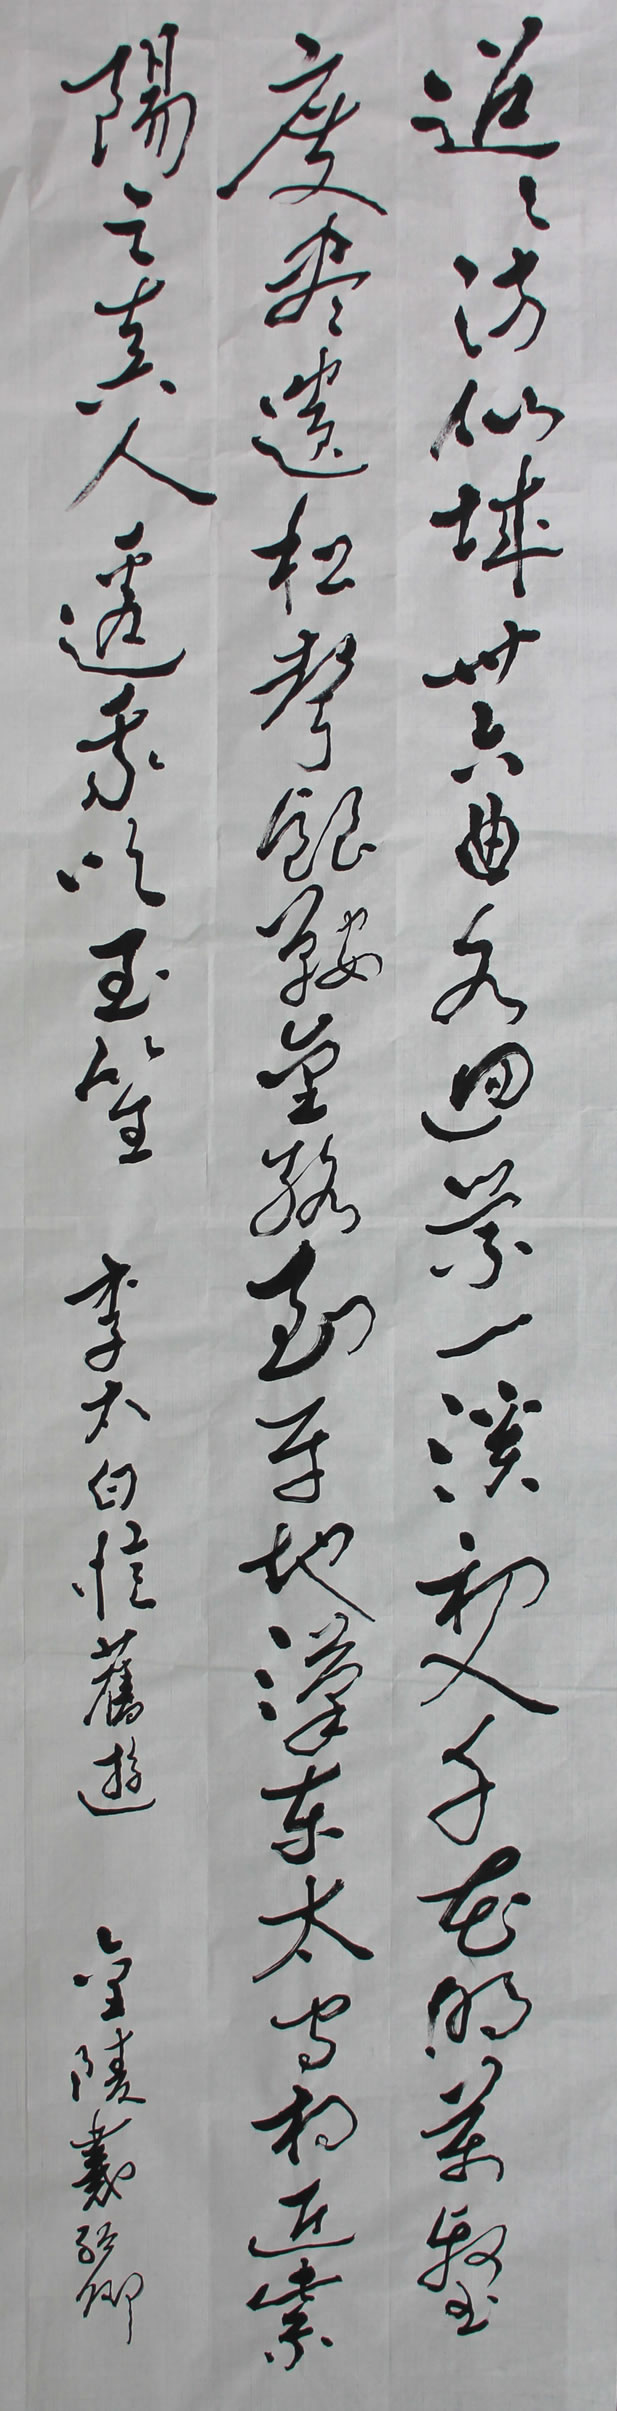 迢々訪仙城卅六曲水迴縈一溪初入千花明萬壑
度盡遺松聲銀鞍金絡到平地漢東太守相迎紫
陽之真人邀我吹玉笙 李太白憶舊遊 金陵戴卿